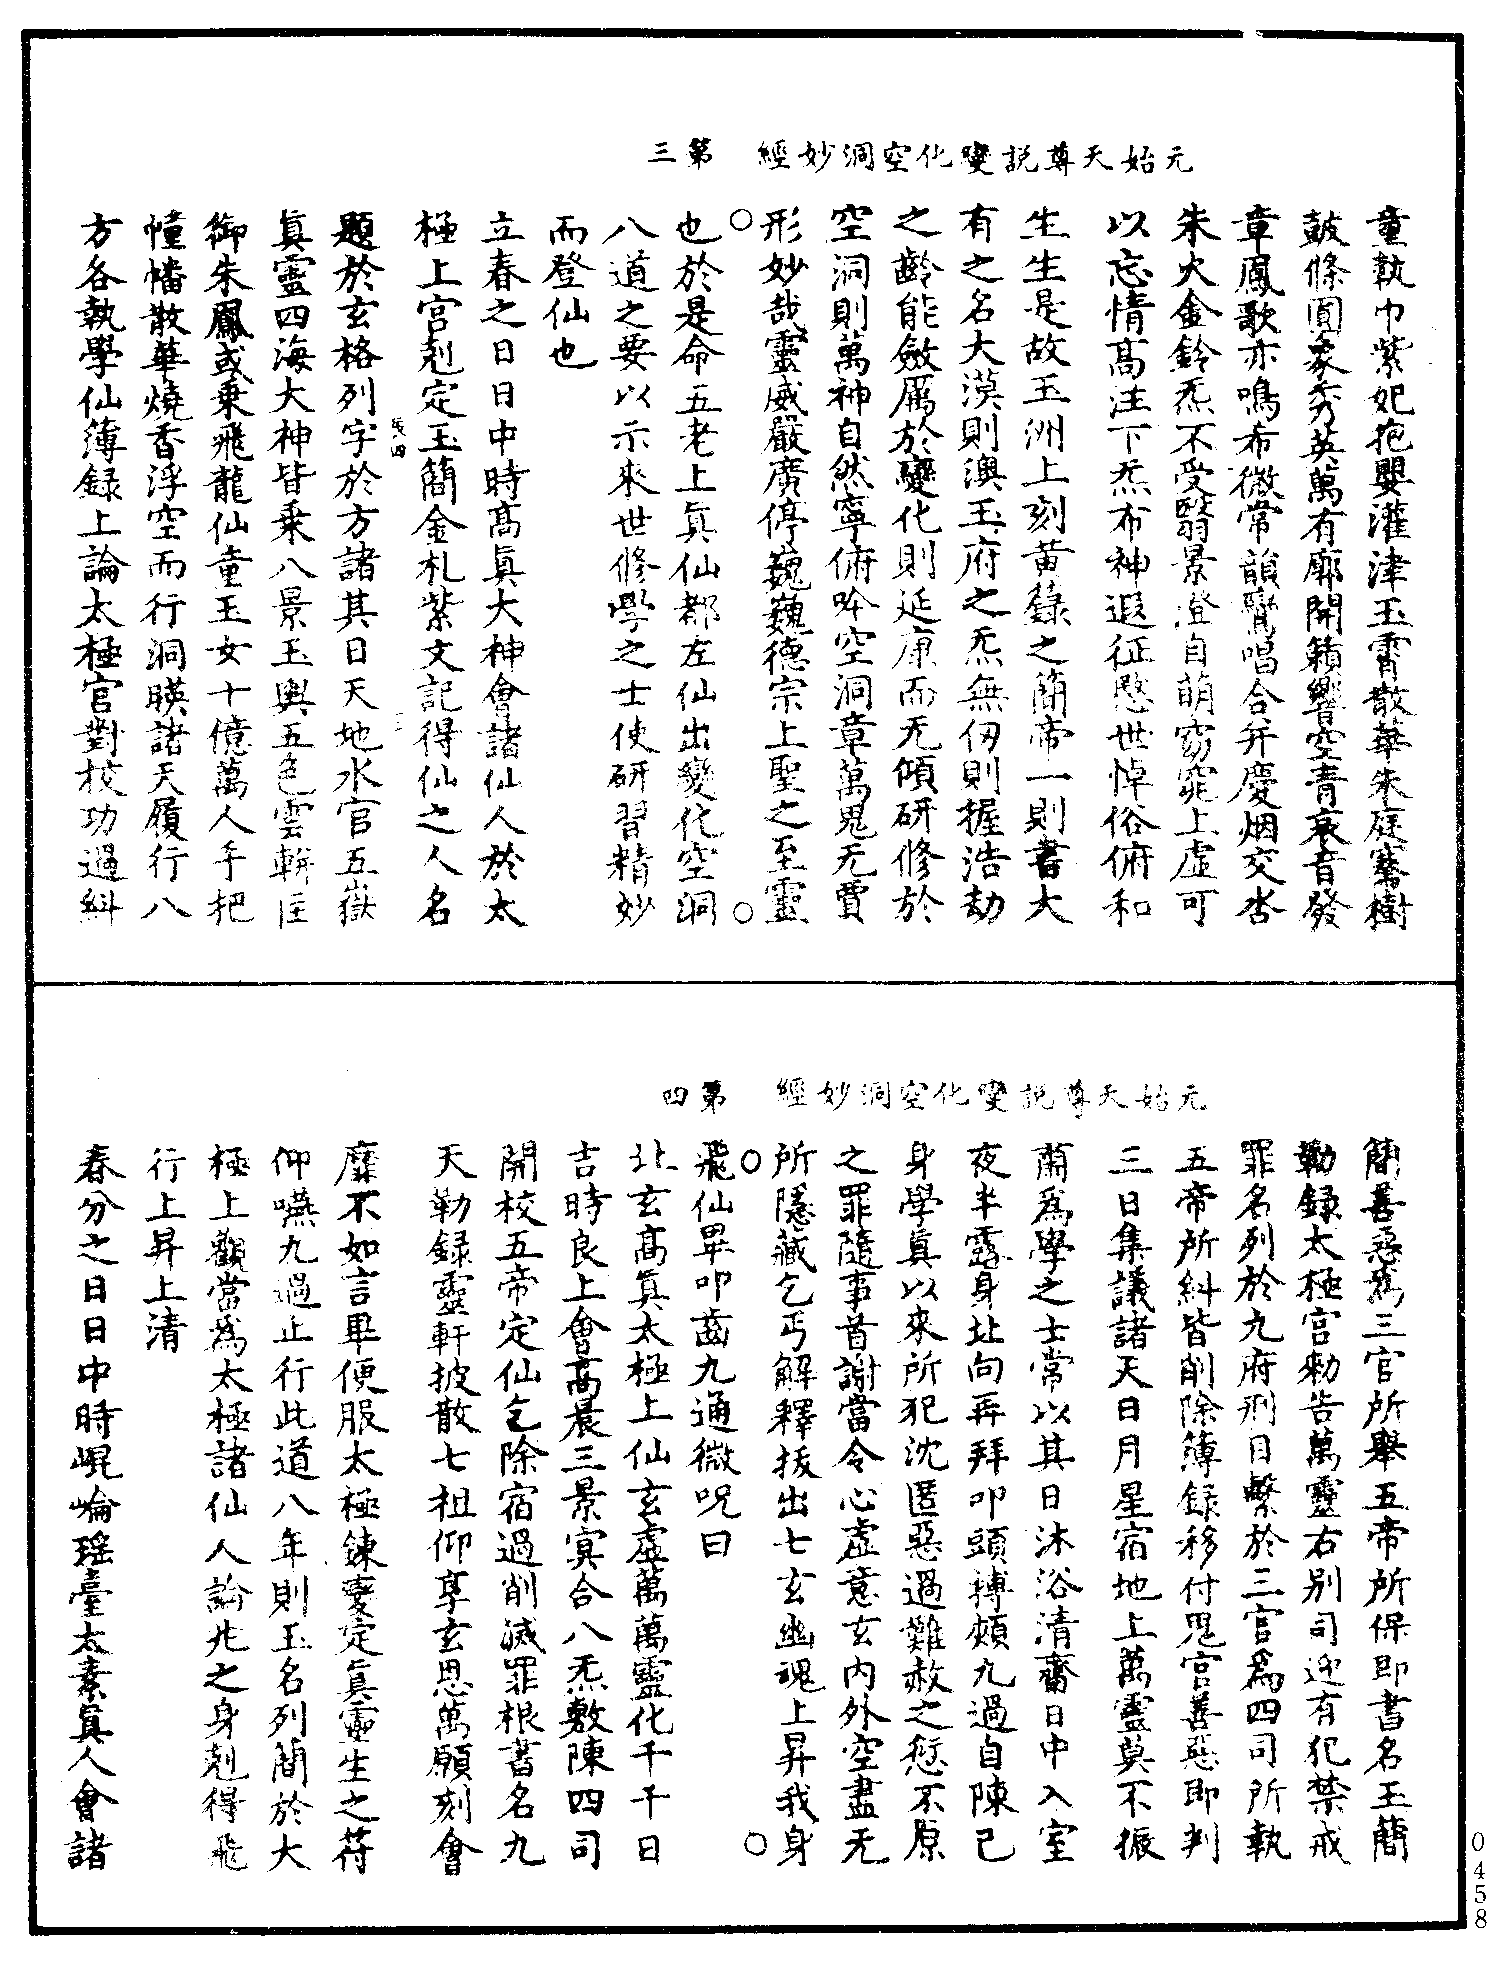 元始天尊說變化空洞妙經　第三
童執巾紫妃抱嬰灌津玉霄散華朱庭騫樹
皷條圓象秀英萬有廓開籟響空青哀音發
章鳳歌亦鳴布微常韻鸞唱合并慶烟交沓
朱火金鈴炁不受翳景澄自萌窈窕上虛可
以忘情髙注下炁布神遐征愍世悼俗俯和
生生是故玉洲上刻黄籙之簡帝一則書大
有之名大漠則澳玉府之炁無份則握浩劫
之齡能斂厲於變化則延康而无傾研修於
空洞則萬神自然寧俯吟空洞章萬鬼无費
形妙哉靈威嚴廣停巍巍德宗上聖之至靈
也於是命五老上眞仙都左仙出變化空洞
八道之要以示來世修學之士使研習精妙
而登仙也
立春之日日中時髙眞大神會諸仙人於太
極上宫剋定玉簡金札紫文記得仙之人名
題於玄格列字於方諸其日天地水官五嶽
眞靈四海大神皆乗八景玉輿五色雲軿徃
御朱鳳或乗飛龍仙童玉女十億萬人手把
幢幡散華燒香浮空而行洞暎諸天履行八
方各執學仙簿録上論太極官對校功過糾
元始天尊說變化空洞妙經　第四
簡善惡爲三官所舉五帝所保即書名玉簡
勒録太極宫勑告萬靈右別司迎有犯禁戒
罪名列於九府刑日繫於三官爲四司所執
五帝所糾皆削除簿録移付鬼官善惡即判
三日集議諸天日月星宿地上萬靈莫不振
肅爲學之士常以其日沐浴清齋日中入室
夜半露身北向再拜叩頭搏頰九過自陳己
身學眞以來所犯沈匿惡過難赦之愆不原
之罪隨事首謝當令心虛意玄内外空盡无
所隱藏乞丐解釋拔出七玄幽魂上昇我身
飛仙畢叩齒九通微呪曰
北玄髙眞太極上仙玄虛萬萬靈化千千日
吉時良上會髙晨三景冥合八炁敷陳四司
開校五帝定仙乞除宿過削滅罪根書名九
天勒録靈軒披散七祖仰享玄恩萬願剋會
靡不如言畢便服太極鍊變定眞靈生之符
仰嚥九過止行此道八年則玉名列簡於大
極上觀當爲太極諸仙人論兆之身剋得飛
行上昇上清
春分之日日中時崐崘瑶臺太素眞人會諸
0458